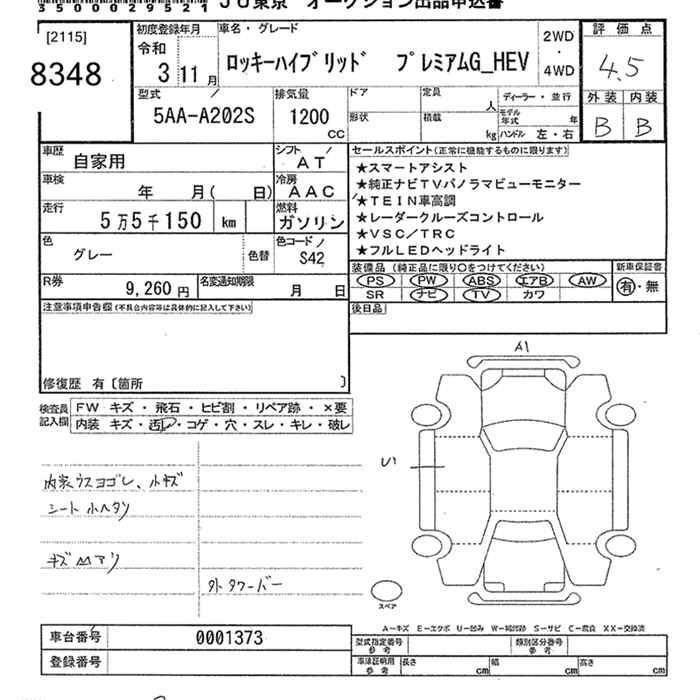 35000029521 JU東京 オークション出品申込書
[2115]
8348
初度登録年月
令和
3 11月
車名・グレード
ロッキーハイブリッド プレミアムG_HEV
2WD
・
4WD
評価点
4.5
外装 内装
B B
型式
5AA-A202S
排気量
1200
CC
ドア
形状
定員
人
積載
kg
ディーラー・並行
モデル年式 年
ハンドル 左・右
車歴
自家用
シフト
AT
車検
年 月( 日)
冷房
AAC
走行
5万5千150 km
燃料
ガソリン
色
グレー
色替
色コード
S42
R券
9,260円
名変通知期限
月 日
セールスポイント(正常に機能するものに限ります)
★スマートアシスト
★純正ナビTVパノラマビューモニター
★TEIN車高調
★レーダークルーズコントロール
★VSC/TRC
★フルLEDヘッドライト
装備品(純正品に限り○をつけてください)
PS PW ABS エアB AW
SR ナビ TV カワ
新車保証書
有・無
注意事項申告欄(不具合内容等は具体的に記入して下さい)
後日品
修復歴 有〔箇所 〕
検査員記入欄
FW キズ・飛石・ヒビ割・リペア跡・×要
内装 キズ・汚レ・コゲ・穴・スレ・キレ・破レ
内装ウスヨゴレ、小キズ
シート小ヘタリ
キズ凹アリ
外タワーバー
A1
U1
スペア
A-キズ E-エクボ U-凹み W-補修跡 S-サビ C-腐食 XX-交換済
車台番号
0001373
登録番号
型式指定番号
参考
類別区分番号
参考
車庫証明用
参考
長さ cm
幅 cm
高さ cm